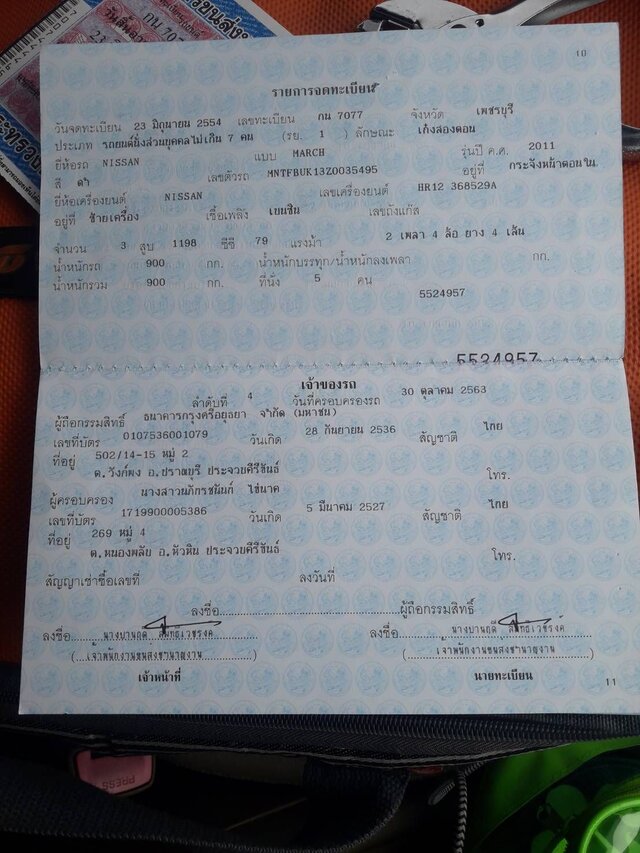 กน 707
10
รายการจดทะเบียน
วันจดทะเบียน 23 มิถุนายน 2554 เลขทะเบียน กน 7077 จังหวัด เพชรบุรี
ประเภท รถยนต์นั่งส่วนบุคคลไม่เกิน 7 คน (รย. 1 ) ลักษณะ เก๋งสองตอน
ยี่ห้อรถ NISSAN แบบ MARCH รุ่นปี ค.ศ. 2011
สี ดำ เลขตัวรถ MNTFBUK13Z0035495 อยู่ที่ กระจังหน้าตอนใน
ยี่ห้อเครื่องยนต์ NISSAN เลขเครื่องยนต์ HR12 368529A
อยู่ที่ ซ้ายเครื่อง เชื้อเพลิง เบนซิน เลขถังแก๊ส
จำนวน 3 สูบ 1198 ซีซี 79 แรงม้า 2 เพลา 4 ล้อ ยาง 4 เส้น
น้ำหนักรถ 900 กก. น้ำหนักบรรทุก/น้ำหนักลงเพลา กก.
น้ำหนักรวม 900 กก. ที่นั่ง 5 คน
5524957
5524957
เจ้าของรถ
ลำดับที่ 4 วันที่ครอบครองรถ 30 ตุลาคม 2563
ผู้ถือกรรมสิทธิ์ ธนาคารกรุงศรีอยุธยา จำกัด (มหาชน)
เลขที่บัตร 0107536001079 วันเกิด 28 กันยายน 2536 สัญชาติ ไทย
ที่อยู่ 502/14-15 หมู่ 2
ต.วังก์พง อ.ปราณบุรี ประจวบคีรีขันธ์ โทร.
ผู้ครอบครอง นางสาวนภัทรชนันท์ ไข่นาค
เลขที่บัตร 1719900005386 วันเกิด 5 มีนาคม 2527 สัญชาติ ไทย
ที่อยู่ 269 หมู่ 4
ต.หนองพลับ อ.หัวหิน ประจวบคีรีขันธ์ โทร.
สัญญาเช่าซื้อเลขที่ ลงวันที่
ลงชื่อ ผู้ถือกรรมสิทธิ์
ลงชื่อ ลงชื่อ
(เจ้าพนักงานขนส่งชำนาญงาน) (เจ้าพนักงานขนส่งชำนาญงาน)
เจ้าหน้าที่ นายทะเบียน
11
PRESS